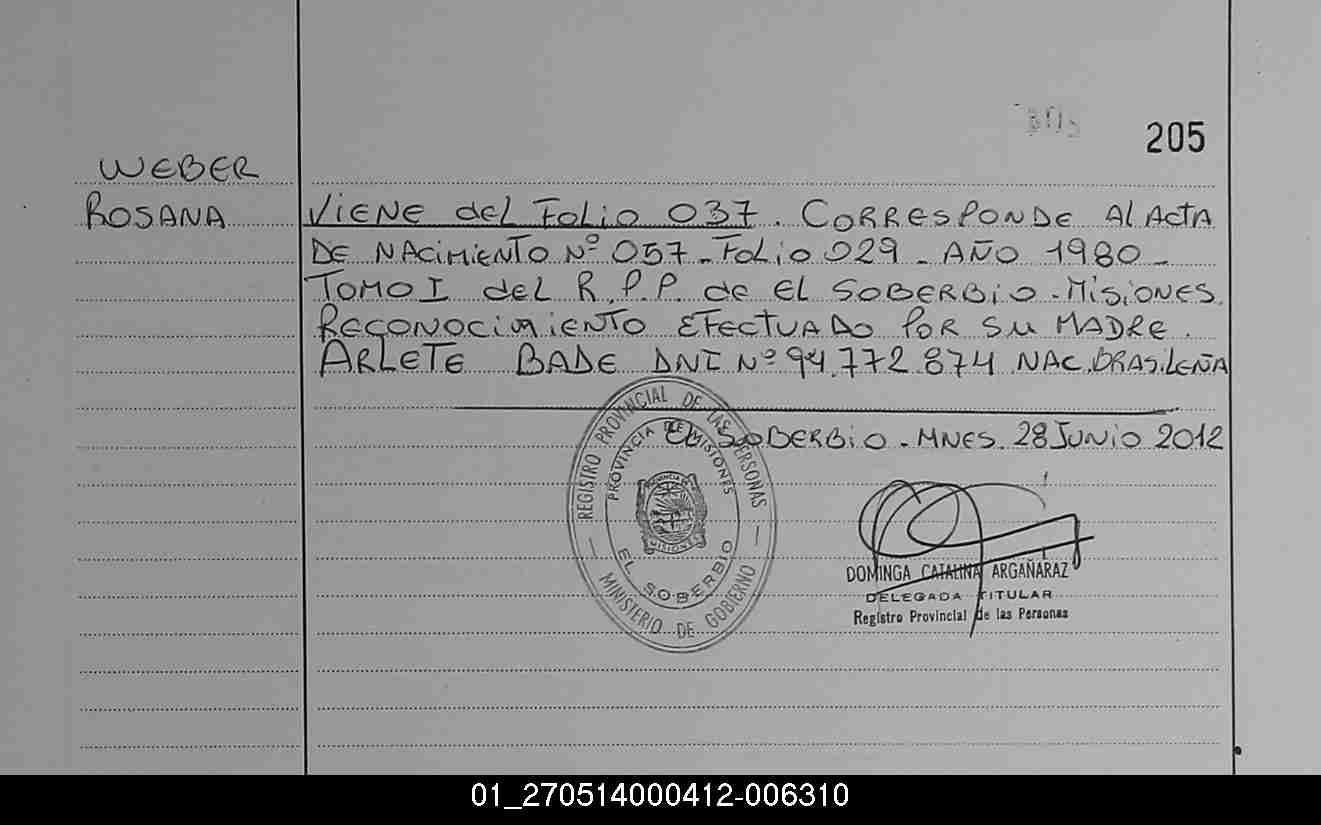 205
WEBER
ROSANA
VIENE del FOLIO 037. CORRESPONDE Al ACTA
DE NACIMIENTO Nº 057 - FOLIO 029 - AÑO 1980 -
TOMO I del R.P.P. de EL SOBERBIO - MISIONES.
RECONOCIMIENTO EFECTUADO POR SU MADRE.
ARLETE BADE DNI Nº 94.772.874 NAC. BRASILEÑA
EL SOBERBIO - MNES. 28 JUNIO 2012
REGISTRO PROVINCIAL DE LAS PERSONAS
PROVINCIA DE MISIONES
EL SOBERBIO
MINISTERIO DE GOBIERNO
DOMINGA CATALINA ARGAÑARAZ
DELEGADA TITULAR
Registro Provincial de las Personas
01_270514000412-006310